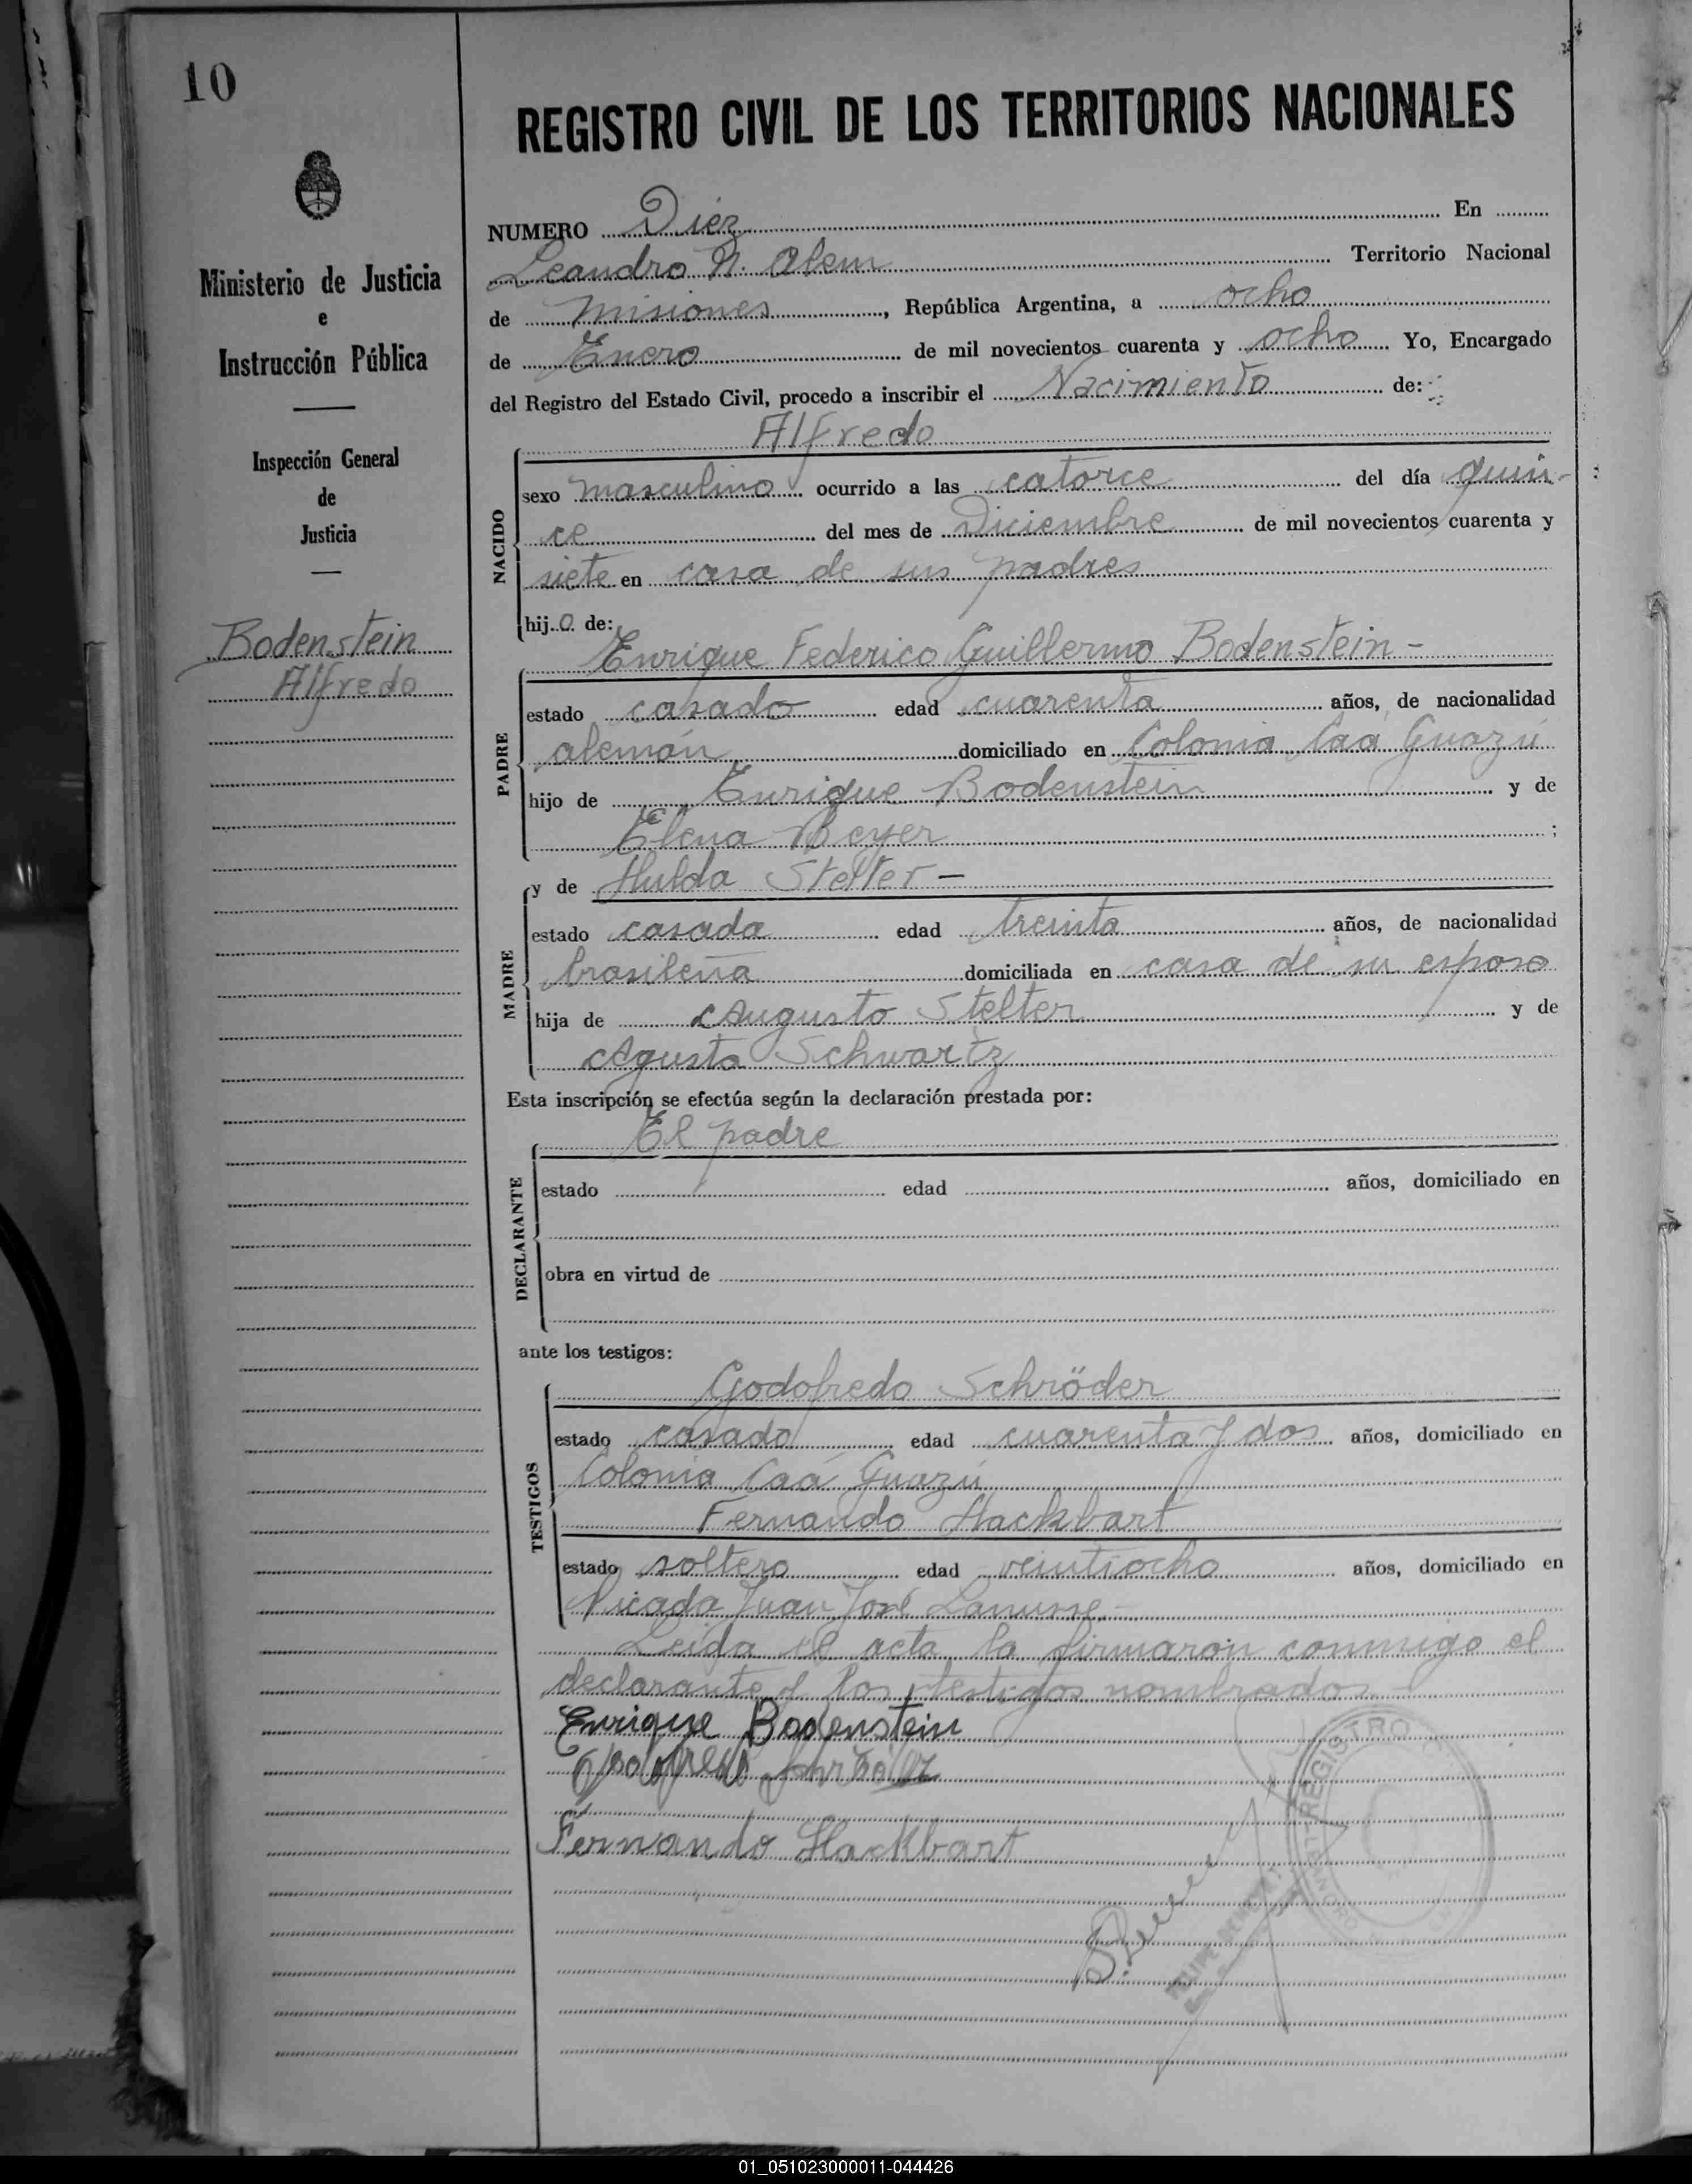 10
REGISTRO CIVIL DE LOS TERRITORIOS NACIONALES
Ministerio de Justicia
e
Instrucción Pública
Inspección General
de
Justicia
Bodenstein
Alfredo
NUMERO Diéz En
Leandro N. Alem Territorio Nacional
de Misiones, República Argentina, a ocho
de Enero de mil novecientos cuarenta y ocho Yo, Encargado
del Registro del Estado Civil, procedo a inscribir el Nacimiento de:
Alfredo
NACIDO
sexo masculino ocurrido a las catorce del día quin-
ce del mes de Diciembre de mil novecientos cuarenta y
siete en casa de sus padres
hijo de:
Enrique Federico Guillermo Bodenstein -
PADRE
estado casado edad cuarenta años, de nacionalidad
alemán domiciliado en Colonia Caá Guazú
hijo de Enrique Bodenstein y de
Elena Beyer;
MADRE
y de Hulda Stelter -
estado casada edad treinta años, de nacionalidad
brasileña domiciliada en casa de su esposo
hija de Augusto Stelter y de
Agusta Schwartz
Esta inscripción se efectúa según la declaración prestada por:
El padre
DECLARANTE
estado edad años, domiciliado en
obra en virtud de
ante los testigos:
Godofredo Schröder
TESTIGOS
estado casado edad cuarenta y dos años, domiciliado en
Colonia Caá Guazú
Fernando Hackbart
estado soltero edad veintiocho años, domiciliado en
Picada Juan José Lanusse.-
Leida el acta la firmaron conmigo el
declarante y los testigos nombrados -
Enrique Bodenstein
Godofredo Schröder
Fernando Hackbart
REGISTRO
01_051023000011-044426